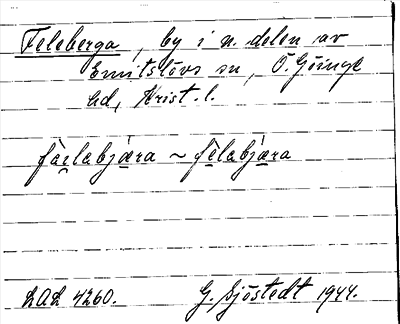 Feleberga, by i n. delen av
Emitslövs sn, Ö. Göinge
hd, Krist. l.
fæ̀labjæra ~ fèlabjæra
LAL 4260. G. Sjöstedt 1944.